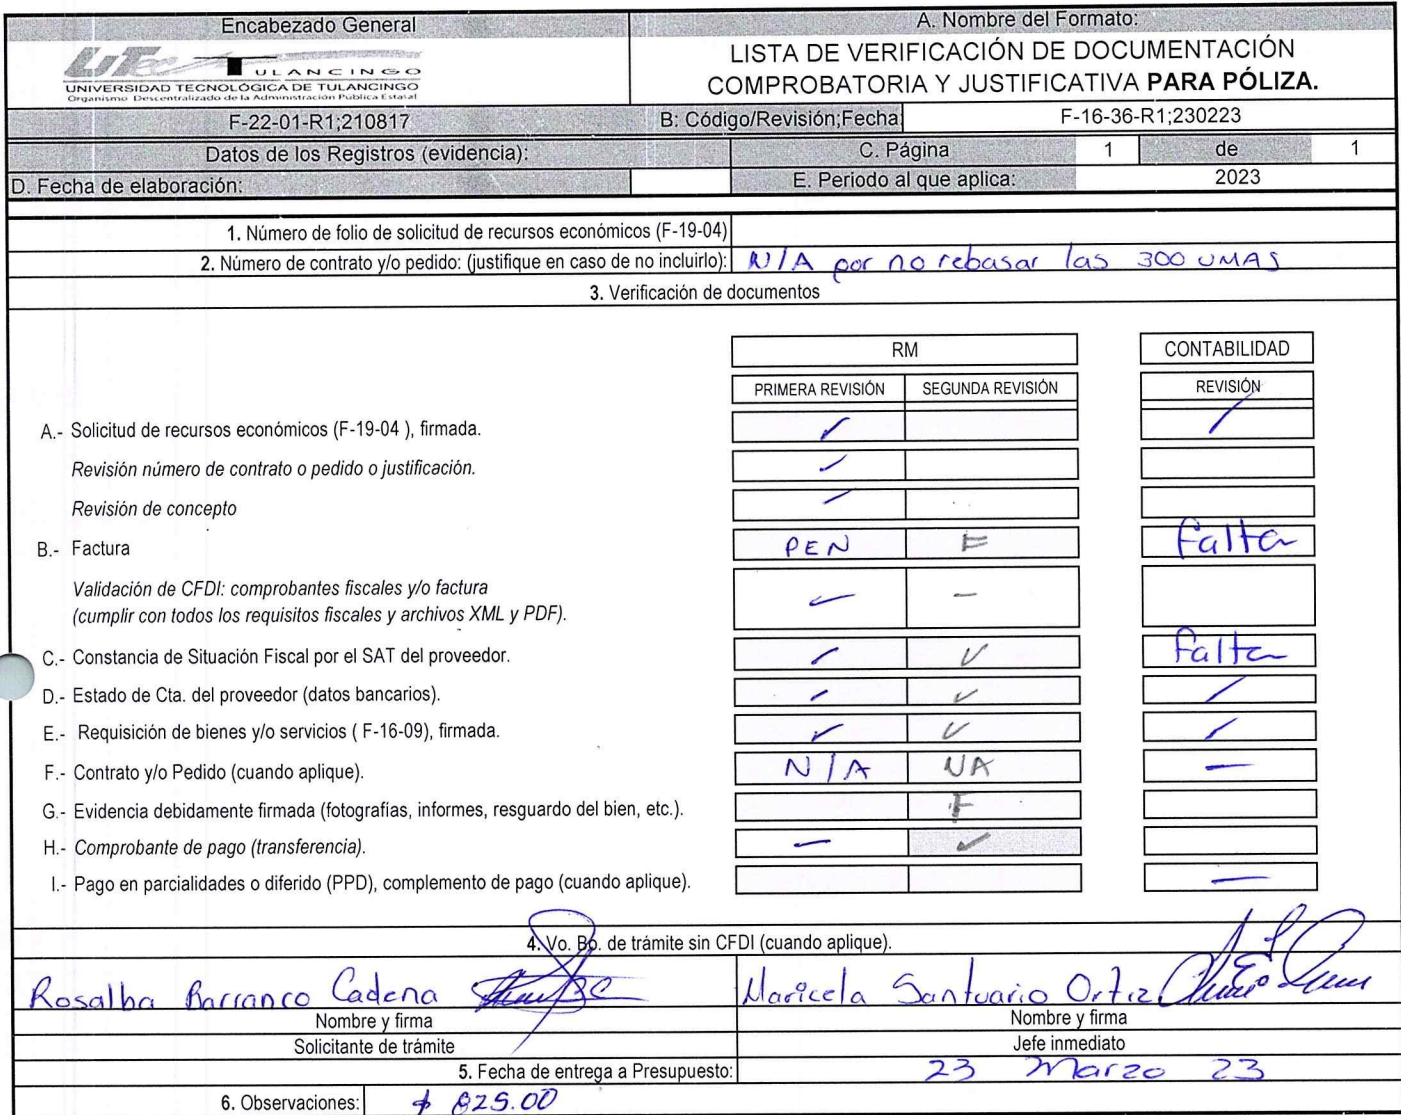 Encabezado General
A. Nombre del Formato:
UTec TULANCINGO
UNIVERSIDAD TECNOLÓGICA DE TULANCINGO
Organismo Descentralizado de la Administración Pública Estatal
LISTA DE VERIFICACIÓN DE DOCUMENTACIÓN
COMPROBATORIA Y JUSTIFICATIVA PARA PÓLIZA.
F-22-01-R1;210817
B: Código/Revisión;Fecha
F-16-36-R1;230223
Datos de los Registros (evidencia):
C. Página 1 de 1
D. Fecha de elaboración:
E. Periodo al que aplica: 2023
1. Número de folio de solicitud de recursos económicos (F-19-04)
2. Número de contrato y/o pedido: (justifique en caso de no incluirlo): N/A por no rebasar las 300 UMAS
3. Verificación de documentos
RM CONTABILIDAD
PRIMERA REVISIÓN SEGUNDA REVISIÓN REVISIÓN
A.- Solicitud de recursos económicos (F-19-04 ), firmada. ✓ /
Revisión número de contrato o pedido o justificación. ✓
Revisión de concepto ✓
B.- Factura PEN F Falta
Validación de CFDI: comprobantes fiscales y/o factura ✓ –
(cumplir con todos los requisitos fiscales y archivos XML y PDF).
C.- Constancia de Situación Fiscal por el SAT del proveedor. ✓ ✓ Falta
D.- Estado de Cta. del proveedor (datos bancarios). ✓ ✓ /
E.- Requisición de bienes y/o servicios ( F-16-09), firmada. ✓ ✓ /
F.- Contrato y/o Pedido (cuando aplique). N/A NA —
G.- Evidencia debidamente firmada (fotografías, informes, resguardo del bien, etc.). F
H.- Comprobante de pago (transferencia). — ✓
I.- Pago en parcialidades o diferido (PPD), complemento de pago (cuando aplique). —
4. Vo. Bo. de trámite sin CFDI (cuando aplique).
Rosalba Barranco Cadena
Maricela Santuario Ortiz
Nombre y firma
Nombre y firma
Solicitante de trámite
Jefe inmediato
5. Fecha de entrega a Presupuesto: 23 Marzo 23
6. Observaciones: $ 825.00